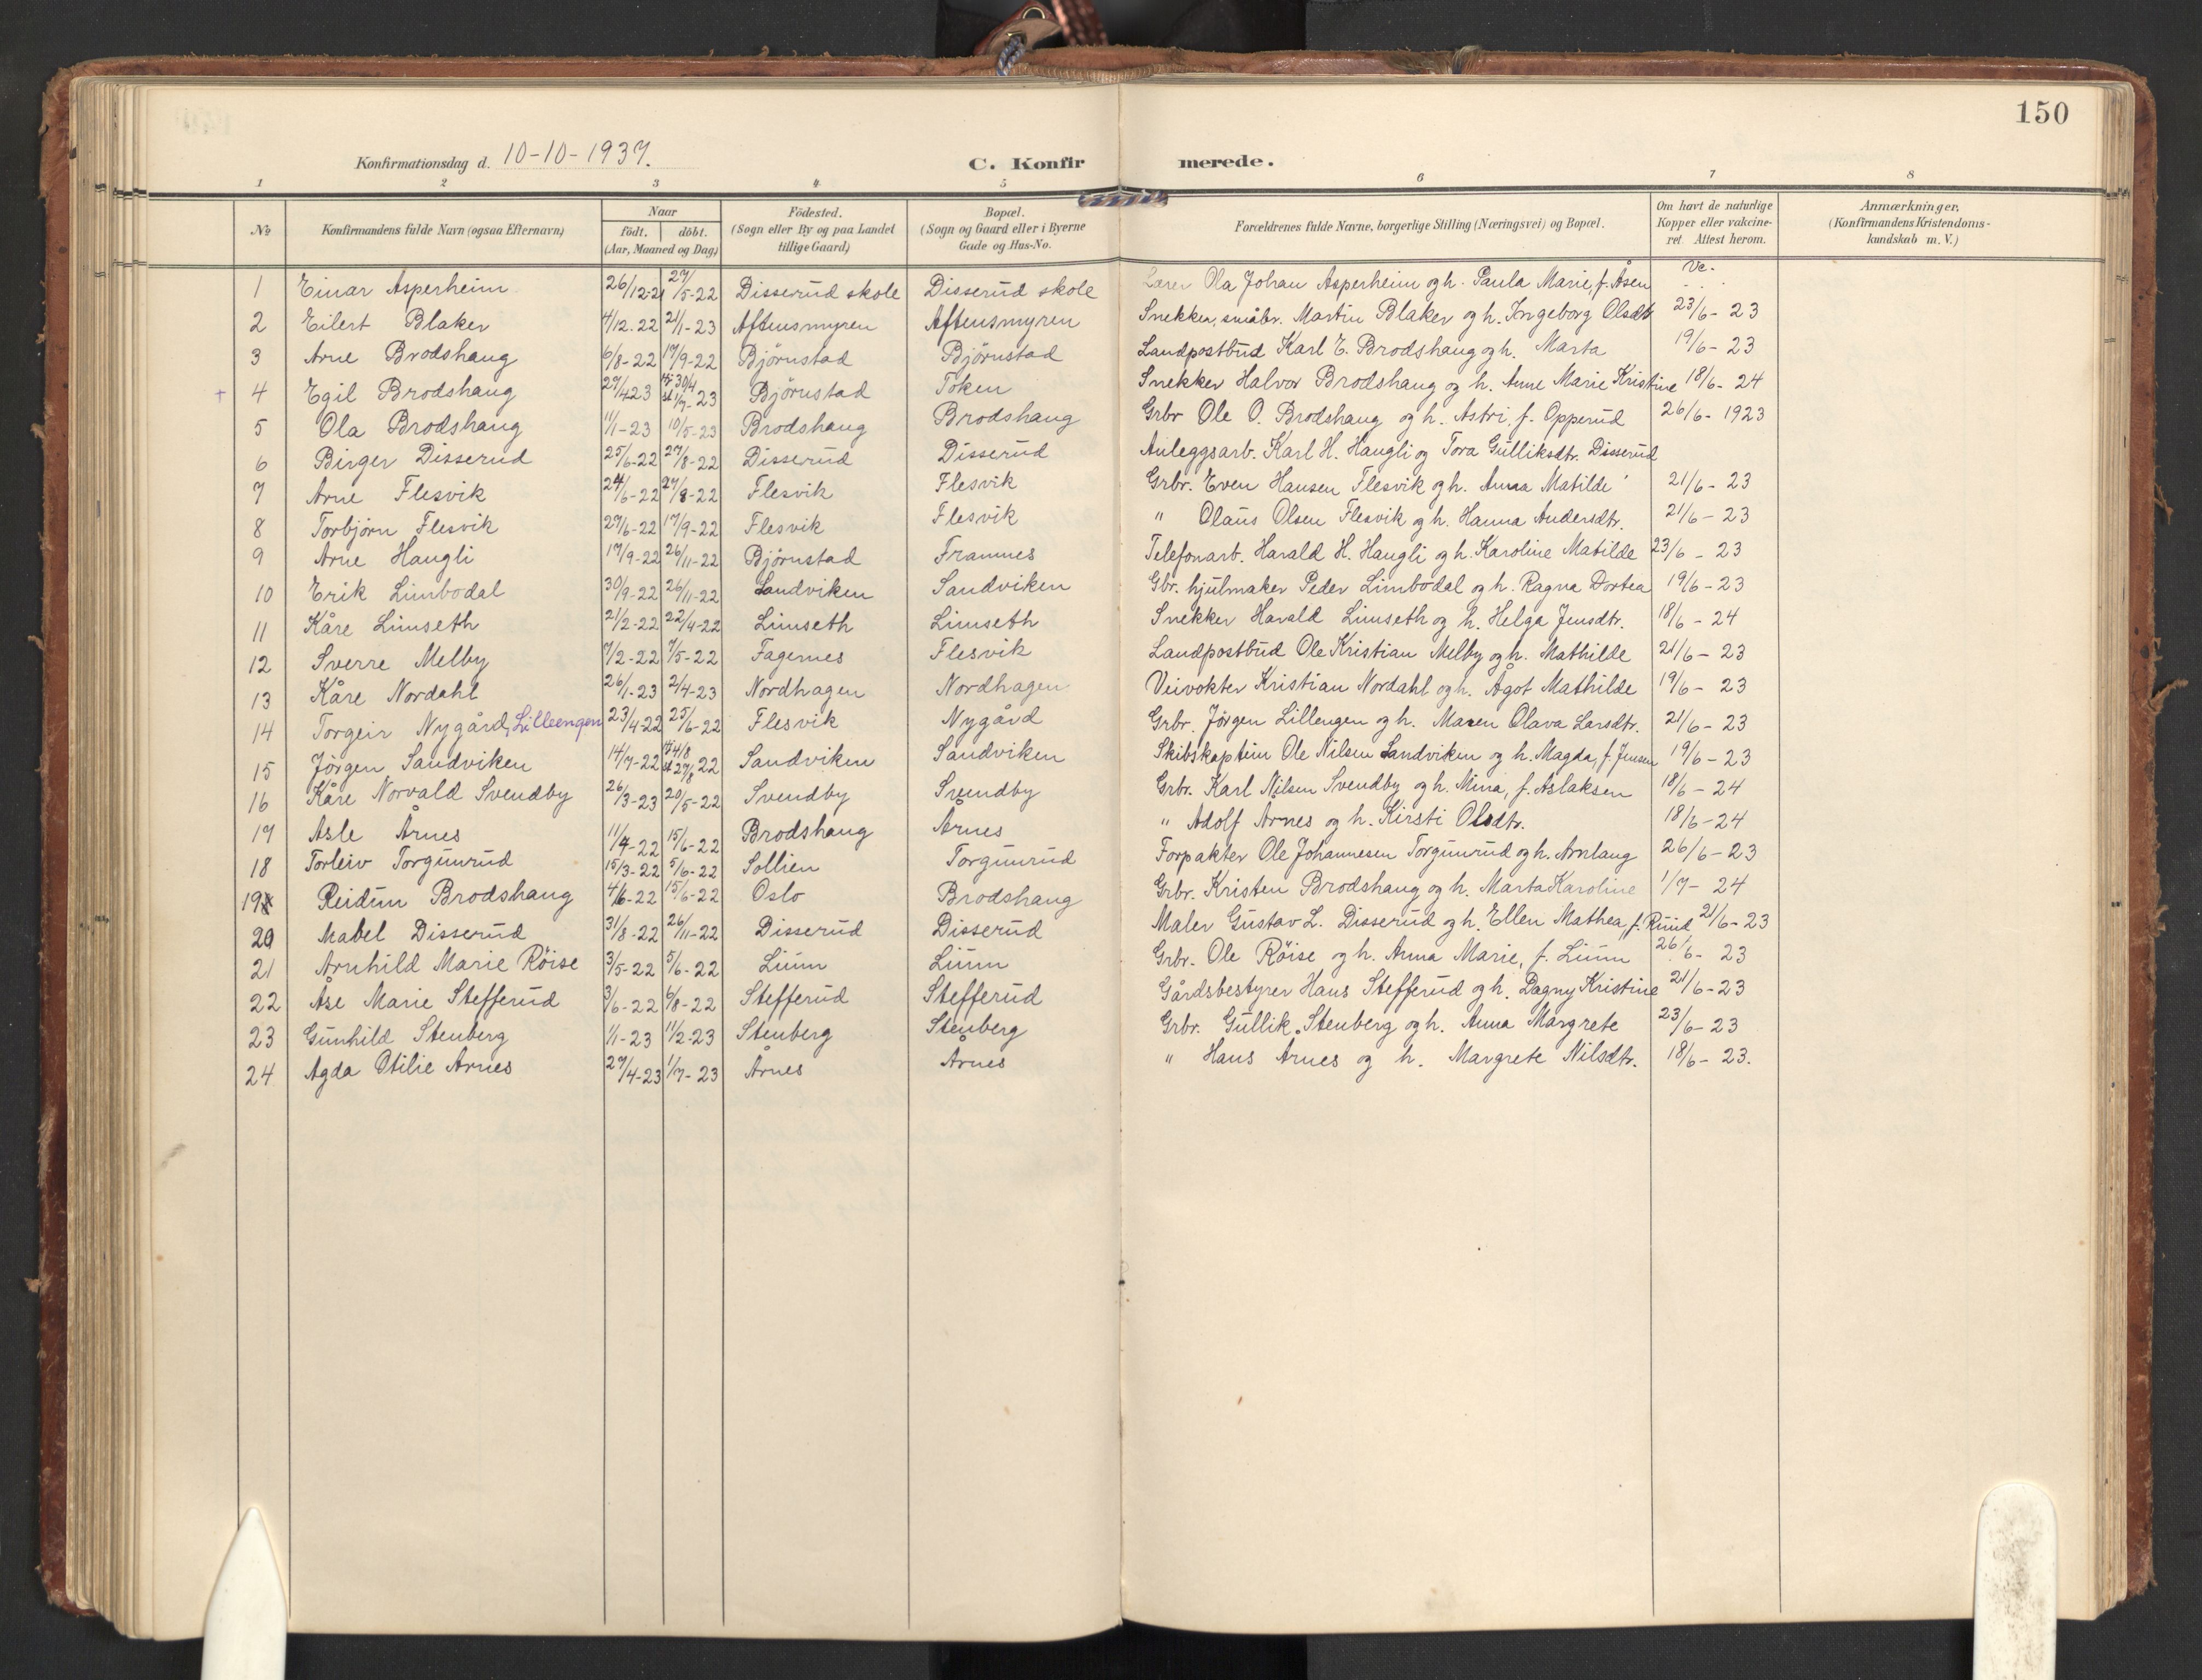 150
Konfirmationsdag d. 10-10-1937. C. Konfirmerede.
1 2 3 4 5 6 7 8
№ Konfirmandens fulde Navn (ogsaa Efternavn) Naar födt. döbt. (Aar, Maaned og Dag) Födested. (Sogn eller By og paa Landet tillige Gaard) Bopæl. (Sogn og Gaard eller i Byerne Gade og Hus-No. Forældrenes fulde Navne, borgerlige Stilling (Næringsvei) og Bopæl. Om havt de naturlige Kopper eller vakcineret Attest herom. Anmærkninger. (Konfirmandens Kristendomskundskab m. V.)
1 Einar Asperheim 26/12-21 27/5-22 Disserud skole Disserud skole Lærer Ola Johan Asperheim og h. Paula Marie, f. Åsen Vc.
2 Eilert Blaker 4/12.22 21/1-23 Aftensmyren Aftensmyren Snekker, småbr. Martin Blaker og h. Ingeborg Olsdtr 23/6-23
3 Arne Brodshaug 6/8-22 17/9-22 Björnstad Björnstad Landpostbud Karl E. Brodshaug og h. Marta 19/6-23
+ 4 Egil Brodshaug 27/4 23 hj 30/4 st 1/7-23 Björnstad Token Snekker Halvor Brodshaug og h. Anne Marie Kristine 18/6-24
5 Ola Brodshaug 11/1-23 10/5-23 Brodshaug Brodshaug Grbr Ole O. Brodshaug og h. Astri, f. Opperud 26/6-1923
6 Birger Disserud 25/6-22 27/8-22 Disserud Disserud Anleggsarb. Karl H. Haugli og Tora Gulliksdtr. Disserud
7 Arne Flesvik 24/6-22 27/8-22 Flesvik Flesvik Grbr. Even Hansen Flesvik og h. Anna Matilde 21/6-23
8 Torbjörn Flesvik 27/6-22 17/9-22 Flesvik Flesvik " Olaus Olsen Flesvik og h. Hanna Andersdtr. 21/6-23
9 Arne Haugli 17/9-22 26/11-22 Björnstad Framnes Telefonarb. Harald H. Haugli og h. Karoline Matilde 23/6-23
10 Erik Limbodal 30/9-22 26/11-22 Sandviken Sandviken Gbr. hjulmaker Peder Limbodal og h. Ragna Dortea 19/6-23
11 Kåre Limseth 21/2-22 22/4-22 Limseth Limseth Snekker Harald Limseth og h. Helga Jensdtr. 18/6-24
12 Sverre Melby 7/2-22 7/5-22 Fagernes Flesvik Landpostbud Ole Kristian Melby og h. Mathilde 21/6-23
13 Kåre Nordahl 26/1-23 2/4-23 Nordhagen Nordhagen Veivokter Kristian Nordahl og h. Ågot Mathilde 19/6-23
14 Torgeir Nygård, Lilleengen 23/4-22 25/6-22 Flesvik Nygård Grbr. Jörgen Lillengen og h. Maren Olava Larsdtr. 21/6-23
15 Jörgen Sandviken 14/7-22 hj 4/8 st 27/8 22 Sandviken Sandviken Skibskaptein Ole Nilsen Sandviken og h. Magda, f. Jensen 19/6-23
16 Kåre Norvald Svendby 26/3-23 20/5-22 Svendby Svendby Grbr. Karl Nilsen Svendby og h. Mina, f. Aslaksen 18/6-24
17 Asle Årnes 11/4-22 15/6-22 Brodshaug Årnes " Adolf Årnes og h. Kirsti Olsdtr. 18/6-24
18 Torleiv Torgunrud 15/3-22 5/6-22 Sollien Torgunrud Forpakter Ole Johannesen Torgunrud og h. Arnlaug 26/6-23
19 Reidun Brodshaug 4/6-22 15/6-22 Oslo Brodshaug Grbr. Kristen Brodshaug og h. Marta Karoline 1/7-24
20 Mabel Disserud 31/8-22 26/11-22 Disserud Disserud Maler Gustav L. Disserud og h. Ellen Mathea, f. Ruud 21/6-23
21 Arnhild Marie Röise 3/5-22 5/6-22 Lium Lium Grbr. Ole Röise og h. Anna Marie, f. Lium 26/6-23
22 Åse Marie Stefferud 3/6-22 6/8-22 Stefferud Stefferud Gårdsbestyrer Hans Stefferud og h. Dagny Kristine 21/6-23
23 Gunhild Stenberg 1/1-23 11/2-23 Stenberg Stenberg Grbr. Gullik Stenberg og h. Anna Margrete 23/6-23
24 Agda Otilie Årnes 27/4-23 1/7-23 Årnes Årnes " Hans Årnes og h. Margrete Nilsdtr. 18/6-23.